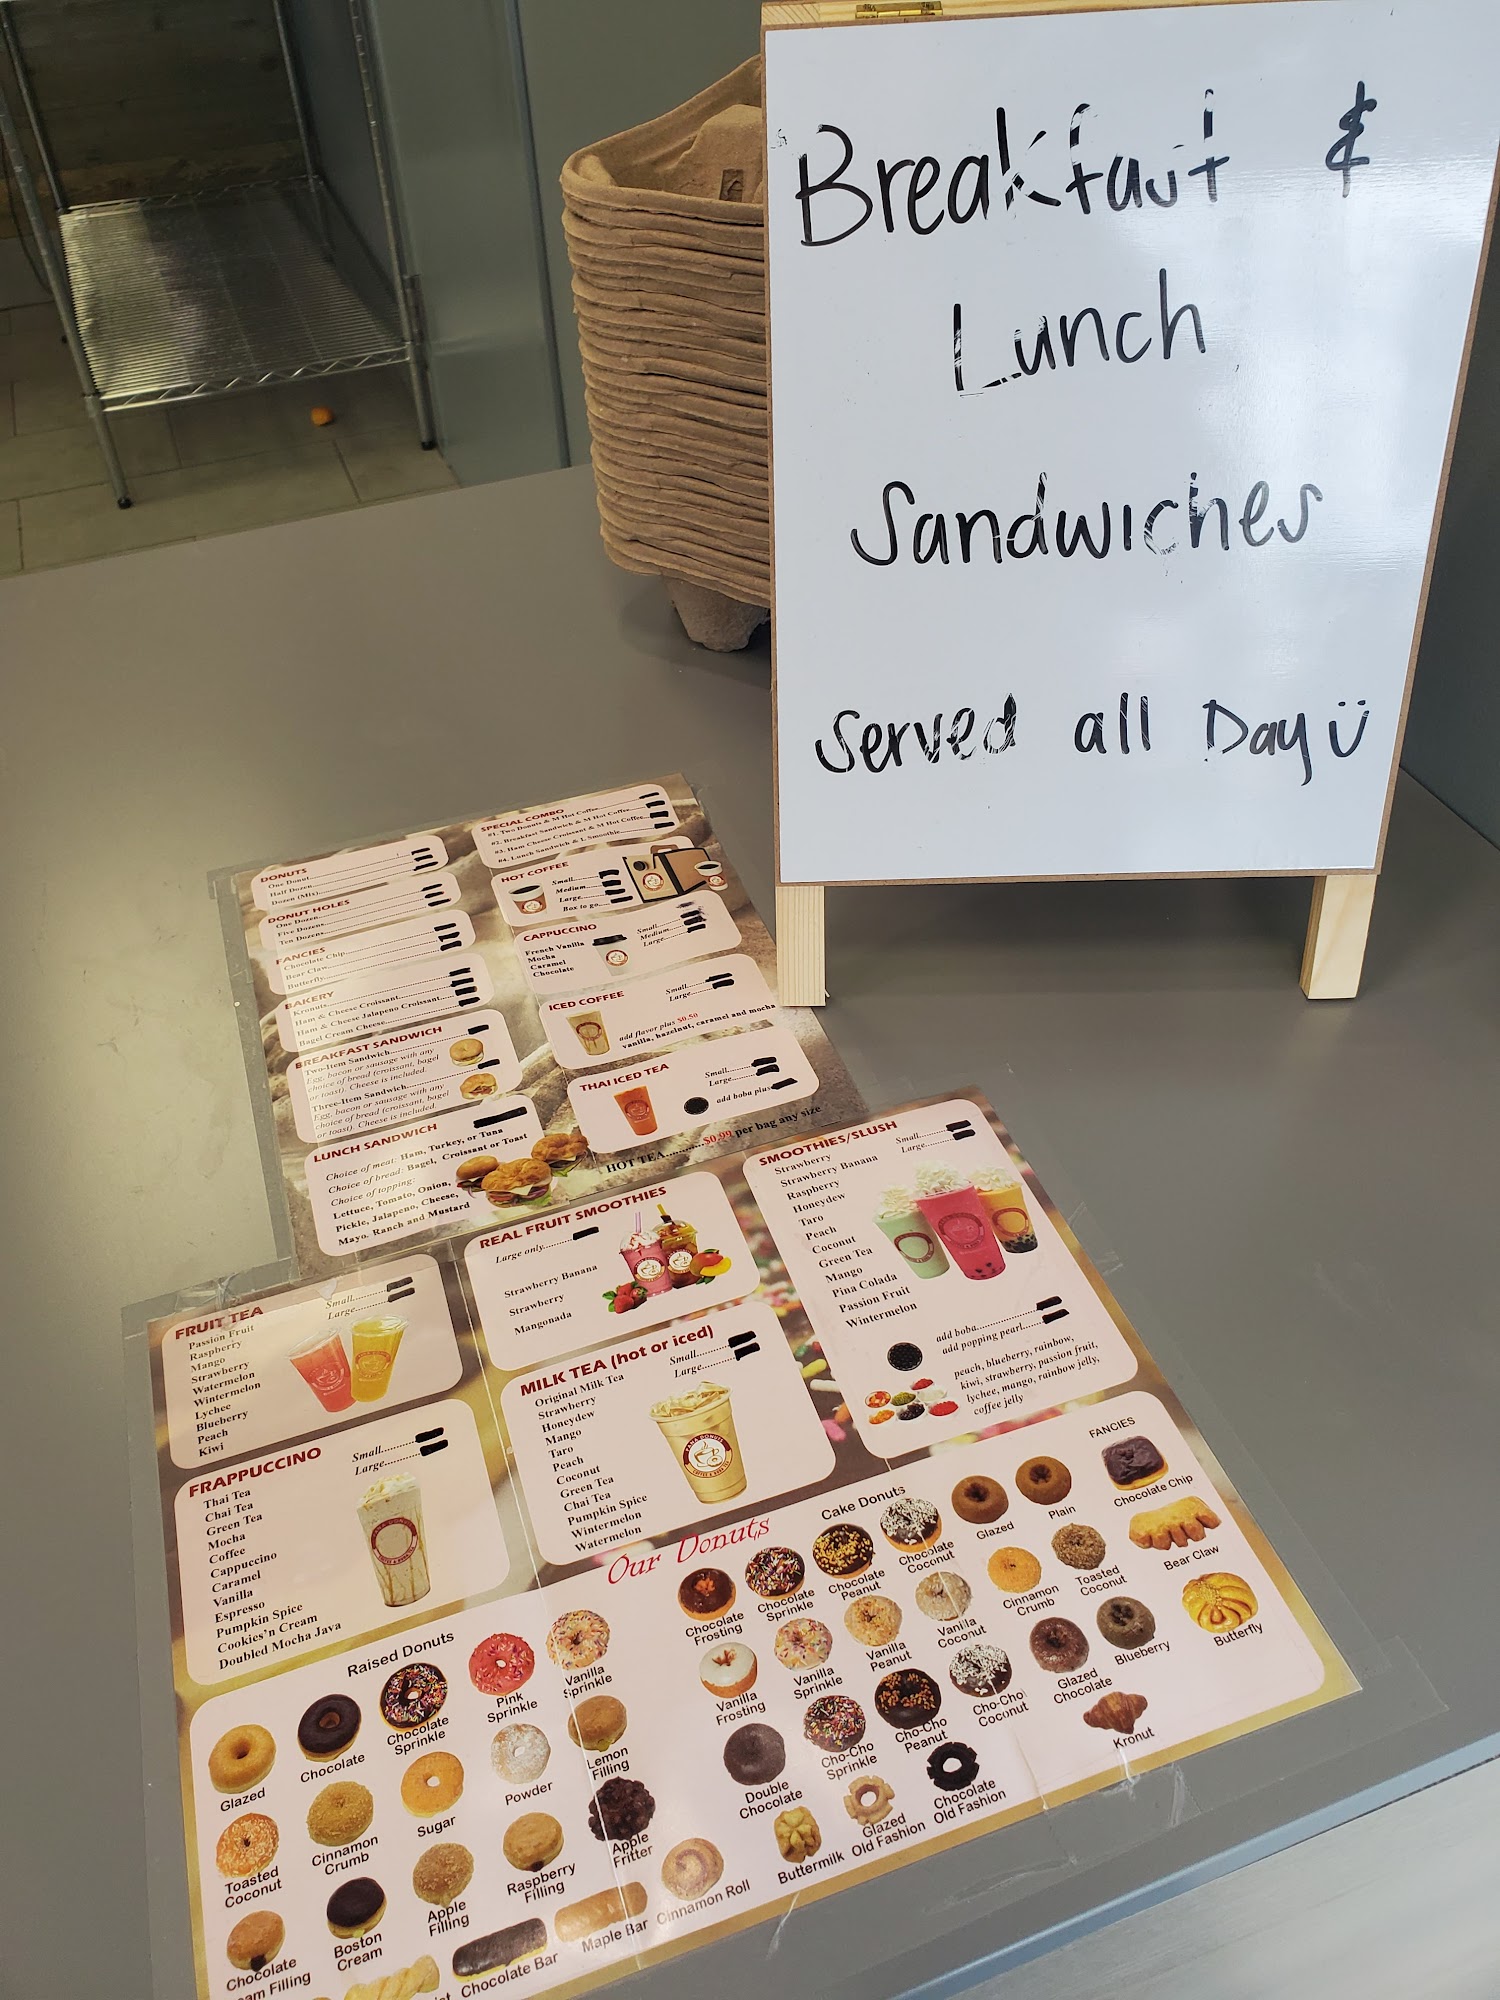 Breakfast &
Lunch
Sandwiches
Served all Day ü
DONUTS
One Donut
Half Dozen
Dozen (Mix)
DONUT HOLES
One Dozen
Five Dozens
Ten Dozens
FANCIES
Chocolate Chip
Bear Claw
Butterfly
BAKERY
Kronuts
Ham & Cheese Croissant
Ham & Cheese Jalapeno Croissant
Bagel Cream Cheese
BREAKFAST SANDWICH
Two-Item Sandwich
Egg, bacon or sausage with any
choice of bread (croissant, bagel
or toast). Cheese is included.
Three-Item Sandwich
Egg, bacon or sausage with any
choice of bread (croissant, bagel
or toast). Cheese is included.
LUNCH SANDWICH
Choice of meat: Ham, Turkey, or Tuna
Choice of bread: Bagel, Croissant or Toast
Choice of topping:
Lettuce, Tomato, Onion,
Pickle, Jalapeno, Cheese,
Mayo, Ranch and Mustard
SPECIAL COMBO
#1. Two Donuts & M Hot Coffee
#2. Breakfast Sandwich & M Hot Coffee
#3. Ham Cheese Croissant & M Hot Coffee
#4. Lunch Sandwich & L Smoothie
HOT COFFEE
Small
Medium
Large
Box to go
CAPPUCCINO
French Vanilla
Mocha
Caramel
Chocolate
Small
Medium
Large
ICED COFFEE
Small
Large
add flavor plus $0.50
vanilla, hazelnut, caramel and mocha
THAI ICED TEA
Small
Large
add boba plus
HOT TEA............$0.99 per bag any size
FRUIT TEA
Small
Large
Passion Fruit
Raspberry
Mango
Strawberry
Watermelon
Wintermelon
Lychee
Blueberry
Peach
Kiwi
FRAPPUCCINO
Small
Large
Thai Tea
Chai Tea
Green Tea
Mocha
Coffee
Cappuccino
Caramel
Vanilla
Espresso
Pumpkin Spice
Cookies'n Cream
Doubled Mocha Java
REAL FRUIT SMOOTHIES
Large only
Strawberry Banana
Strawberry
Mangonada
MILK TEA (hot or iced)
Small
Large
Original Milk Tea
Strawberry
Honeydew
Mango
Taro
Peach
Coconut
Green Tea
Chai Tea
Pumpkin Spice
Wintermelon
Watermelon
SMOOTHIES/SLUSH
Small
Large
Strawberry
Strawberry Banana
Raspberry
Honeydew
Taro
Peach
Coconut
Green Tea
Mango
Pina Colada
Passion Fruit
Wintermelon
add boba
add popping pearl
peach, blueberry, rainbow,
kiwi, strawberry, passion fruit,
lychee, mango, rainbow jelly,
coffee jelly
Our Donuts
Raised Donuts
Glazed
Chocolate
Chocolate
Sprinkle
Pink
Sprinkle
Vanilla
Sprinkle
Toasted
Coconut
Cinnamon
Crumb
Sugar
Powder
Lemon
Filling
Chocolate
Boston
Cream
Apple
Filling
Raspberry
Filling
Apple
Fritter
Chocolate Bar
Maple Bar
Cinnamon Roll
Cake Donuts
Chocolate
Frosting
Chocolate
Sprinkle
Chocolate
Peanut
Chocolate
Coconut
Glazed
Plain
Vanilla
Frosting
Vanilla
Sprinkle
Vanilla
Peanut
Vanilla
Coconut
Cinnamon
Crumb
Toasted
Coconut
Double
Chocolate
Cho-Cho
Sprinkle
Cho-Cho
Peanut
Cho-Cho
Coconut
Glazed
Chocolate
Blueberry
Buttermilk
Glazed
Old Fashion
Chocolate
Old Fashion
Kronut
FANCIES
Chocolate Chip
Bear Claw
Butterfly